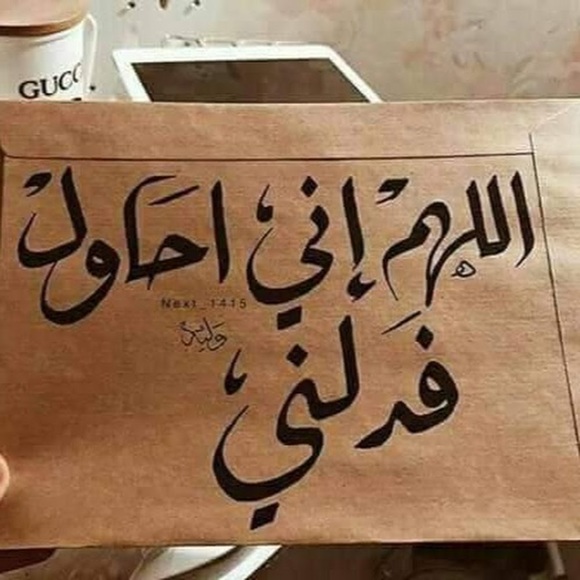 GUCC
اللهم إني احاول
Next_1415
وليد
فدلني